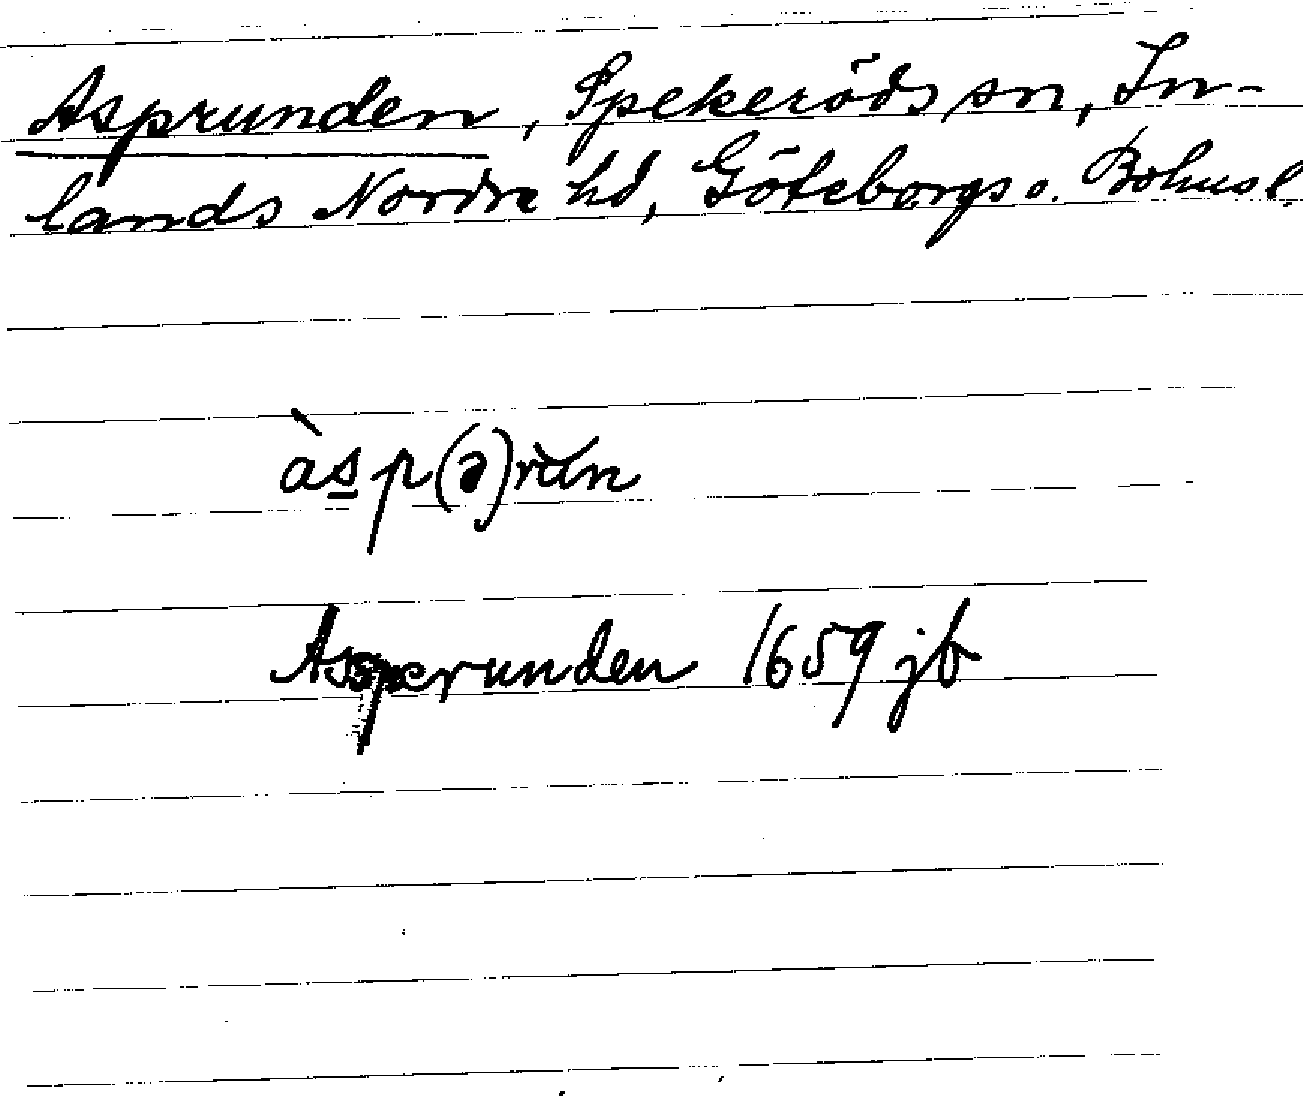 Asprunden, Spekeröds sn, In-
lands Nordre hd, Göteborgs o. Bohusl.
àsp(ə)run
Assperunden 1659 jb